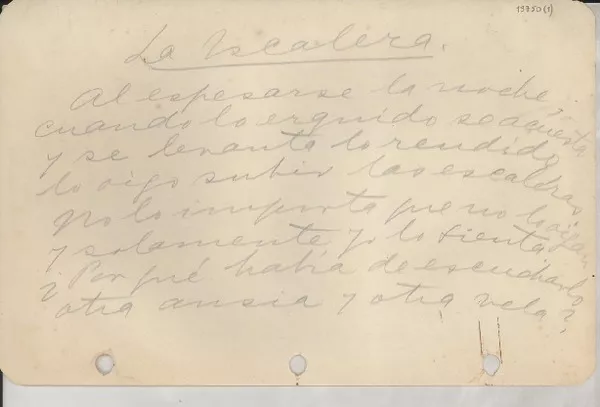 13250(1)
La Escalera.
Al espesarse la noche,
cuando lo erguido se acuesta
y se levanta lo rendido,
lo oigo subir las escaleras
No lo importa que no lo oigan
y solamente yo lo sienta
¿Por qué había de escucharlo
otra ansia y otra vela?